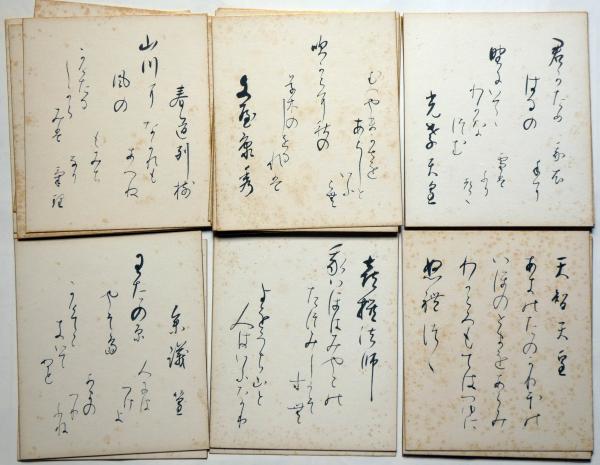 君かため
はるの
野にいてゝ
わかな
つむ
我衣
手に
雪は
ふり
光孝天皇
むへやま風を
あらしと
いふ
吹からに秋の
草木のしをるれは
文屋康秀
春道列樹
山川に
風の
なかれも
あへぬ
もみち
しから
みは
天智天皇
あきのたのかりほの
いほのとまをあらみ
わかころもてはつゆに
ぬれつゝ
喜撰法師
我いほはみやこの
たつみしかそ
すむ
よをうち山と
人はいふなり
参議篁
わたの原
やそ島
かけて
こき
いて
ぬと
人には
つけよ
あまの
つり
ふね